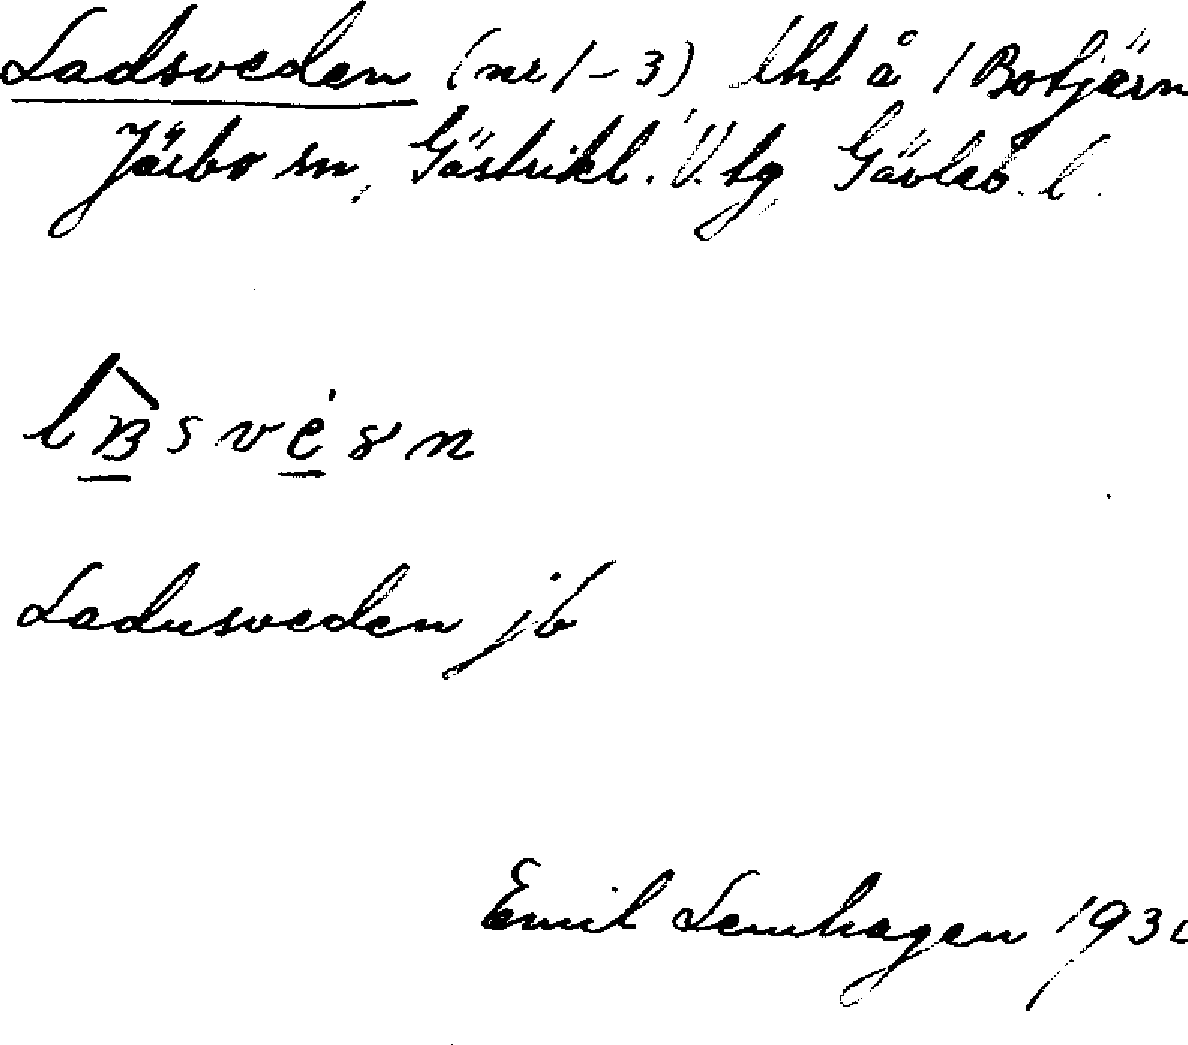 Ladsveden (nr 1-3) lht å 1 Botjärn
Järbo sn, Gästrikl. V. tg, Gävleb. l.
Ladusveden jb
Emil Lemhagen